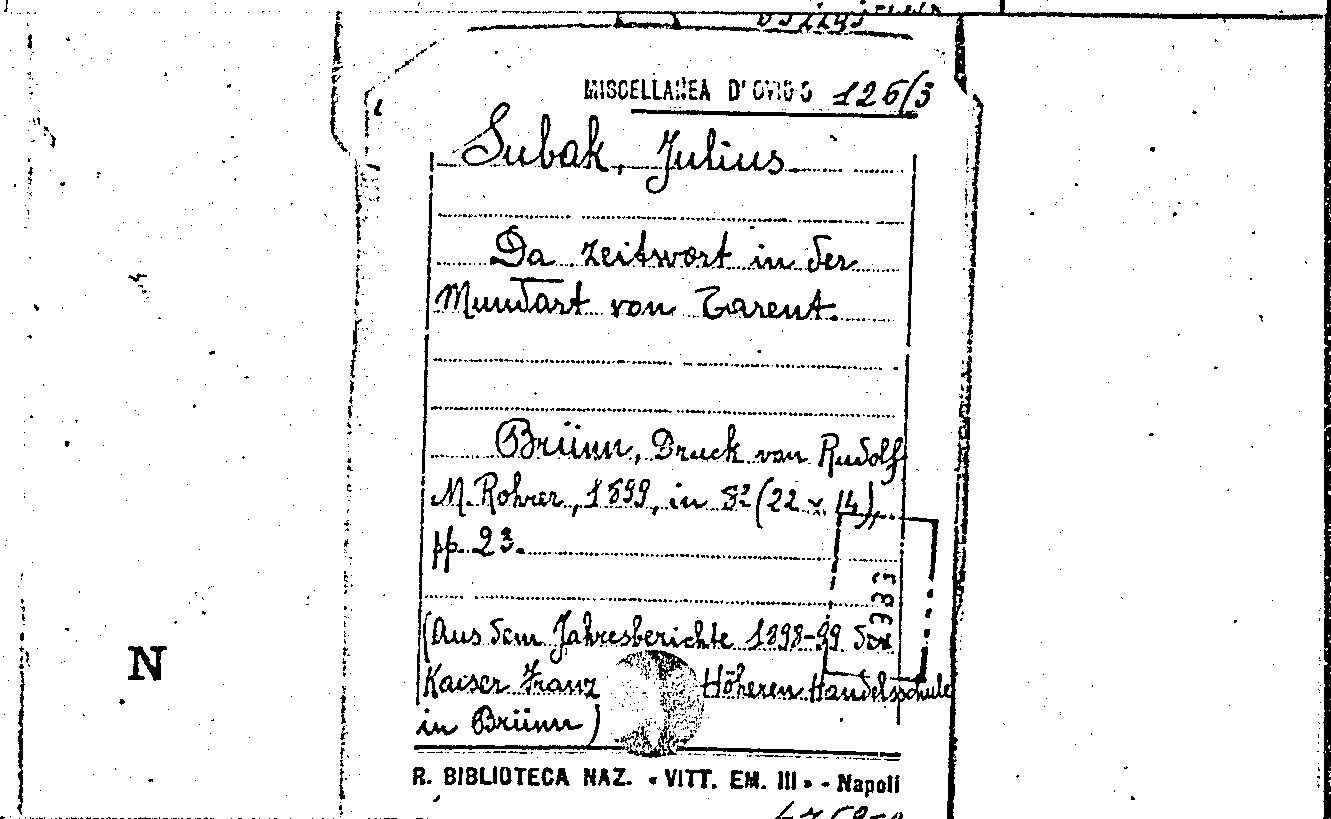 MISCELLANEA D'OVIDIO 126/3
Subak, Julius.
Da zeitwort in der
Mundart von Tarent.
Brünn, Druck von Rudolf
M. Rohrer, 1899, in 8º (22 x 14),
pp. 23.
(Aus dem Jahresberichte 1898-99 der
Kaiser Franz Höheren Handelsschule
in Brünn)
N
R. BIBLIOTECA NAZ. « VITT. EM. III » - Napoli